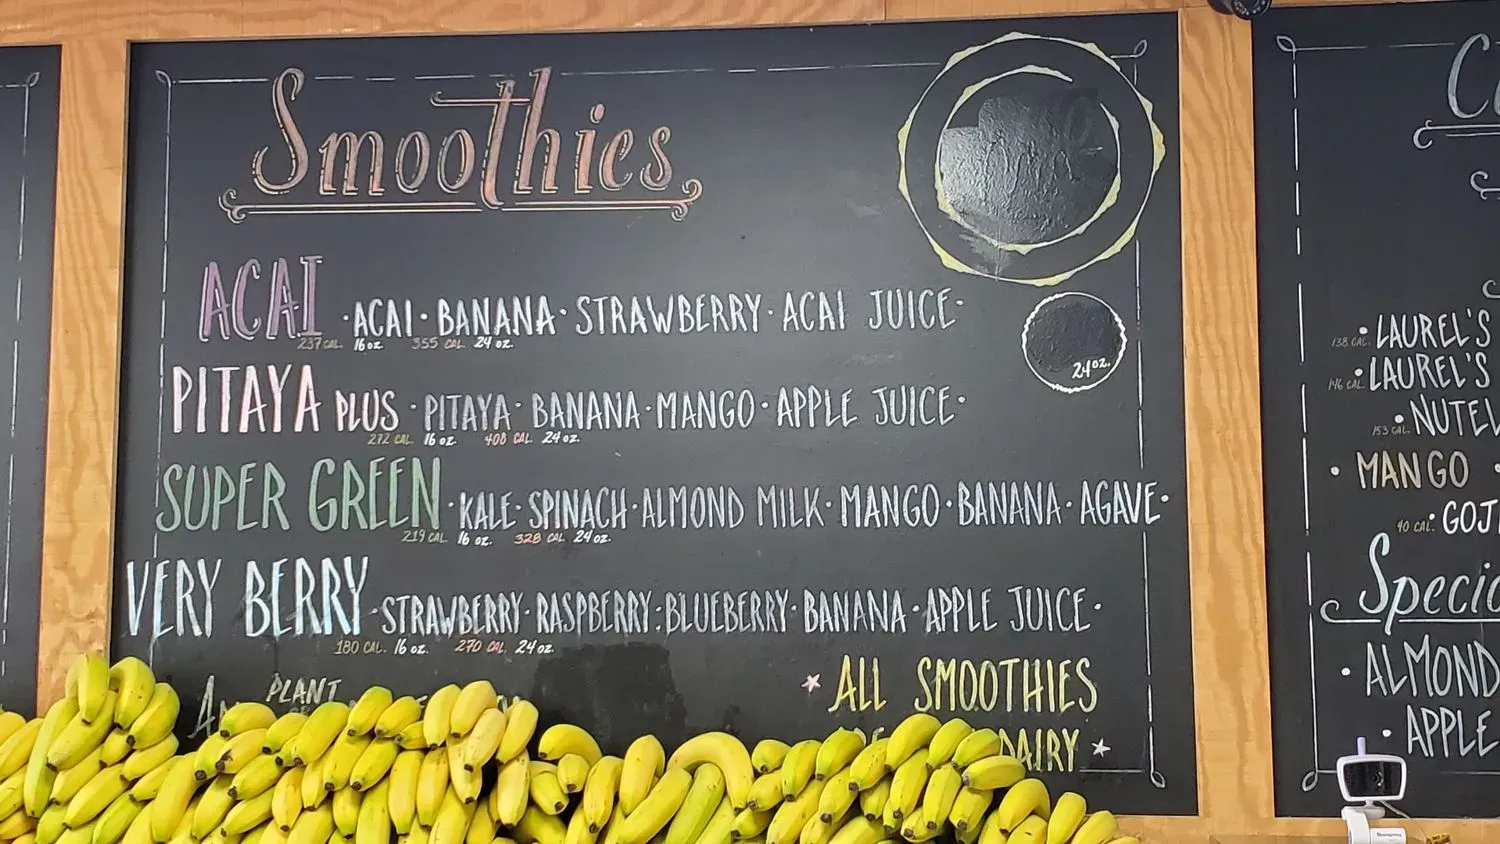 Smoothies
ACAI · ACAI · BANANA · STRAWBERRY · ACAI JUICE ·
237 CAL. 16 oz. 355 CAL. 24 oz.
24 oz.
PITAYA PLUS · PITAYA · BANANA · MANGO · APPLE JUICE ·
272 CAL. 16 oz. 408 CAL. 24 oz.
SUPER GREEN · KALE · SPINACH · ALMOND MILK · MANGO · BANANA · AGAVE ·
219 CAL. 16 oz. 328 CAL. 24 oz.
VERY BERRY · STRAWBERRY · RASPBERRY · BLUEBERRY · BANANA · APPLE JUICE ·
180 CAL. 16 oz. 270 CAL. 24 oz.
PLANT
ALL SMOOTHIES
DAIRY
138 CAL. · LAUREL'S
146 CAL. · LAUREL'S
153 CAL. · NUTEL
· MANGO ·
40 CAL. · GOJ
Specia
· ALMOND
· APPLE